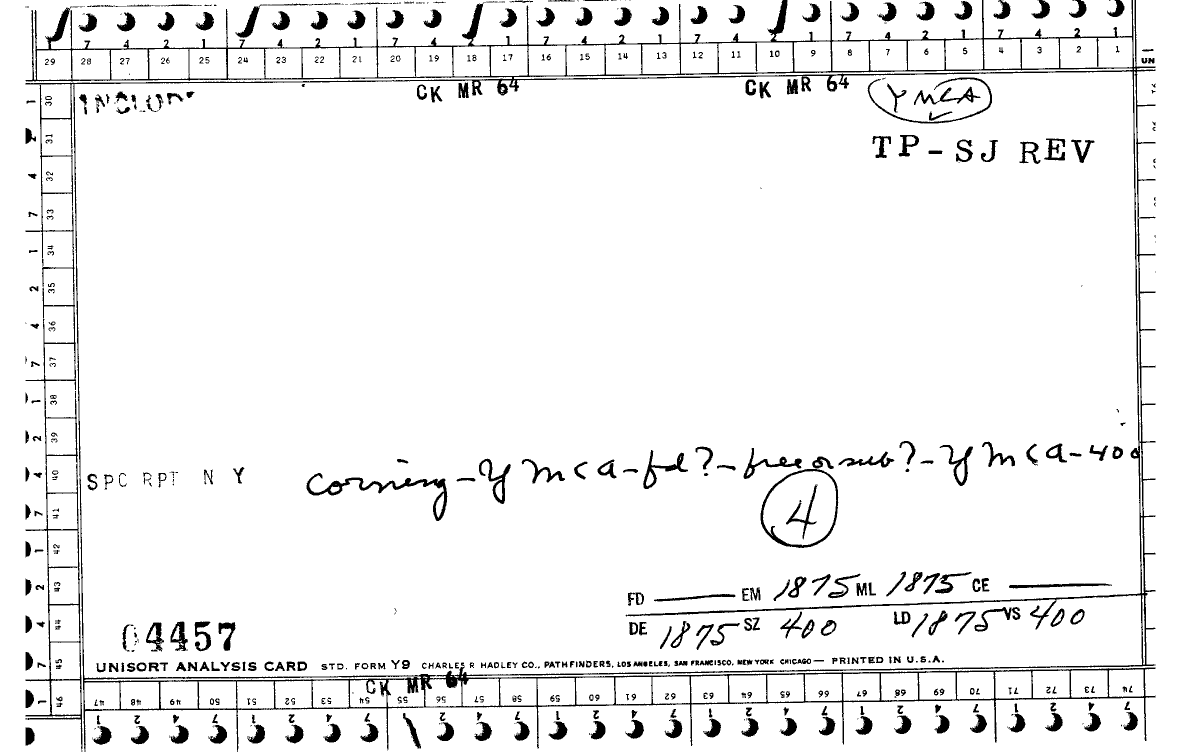 7 4 2 1 7 4 2 1 7 4 2 1 7 4 2 1 7 4 2 1 7 4 2 1 7 4 2 1
29 28 27 26 25 24 23 22 21 20 19 18 17 16 15 14 13 12 11 10 9 8 7 6 5 4 3 2 1
UN
INCLUD
CK MR 64 CK MR 64 YMCA
TP-SJ REV
1 30
2 31
4 32
7 33
1 34
2 35
4 36
7 37
1 38
2 39
4 40
7 41
1 42
2 43
4 44
7 45
1 46
SPC RPT N Y corning-YMCA-fd?-free or sub?-YMCA-400
4
FD EM 1875 ML 1875 CE
DE 1875 SZ 400 LD 1875 VS 400
04457
UNISORT ANALYSIS CARD STD. FORM Y9 CHARLES R HADLEY CO., PATHFINDERS, LOS ANGELES, SAN FRANCISCO, NEW YORK CHICAGO — PRINTED IN U.S.A.
CK MR 64
47 48 49 50 51 52 53 54 55 56 57 58 59 60 61 62 63 64 65 66 67 68 69 70 71 72 73 74
1 2 4 7 1 2 4 7 2 4 7 1 2 4 7 1 2 4 7 1 2 4 7 1 2 4 7